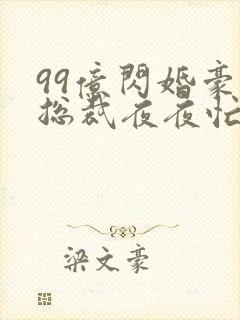 99億閃婚豪
総裁夜夜忙
梁文豪